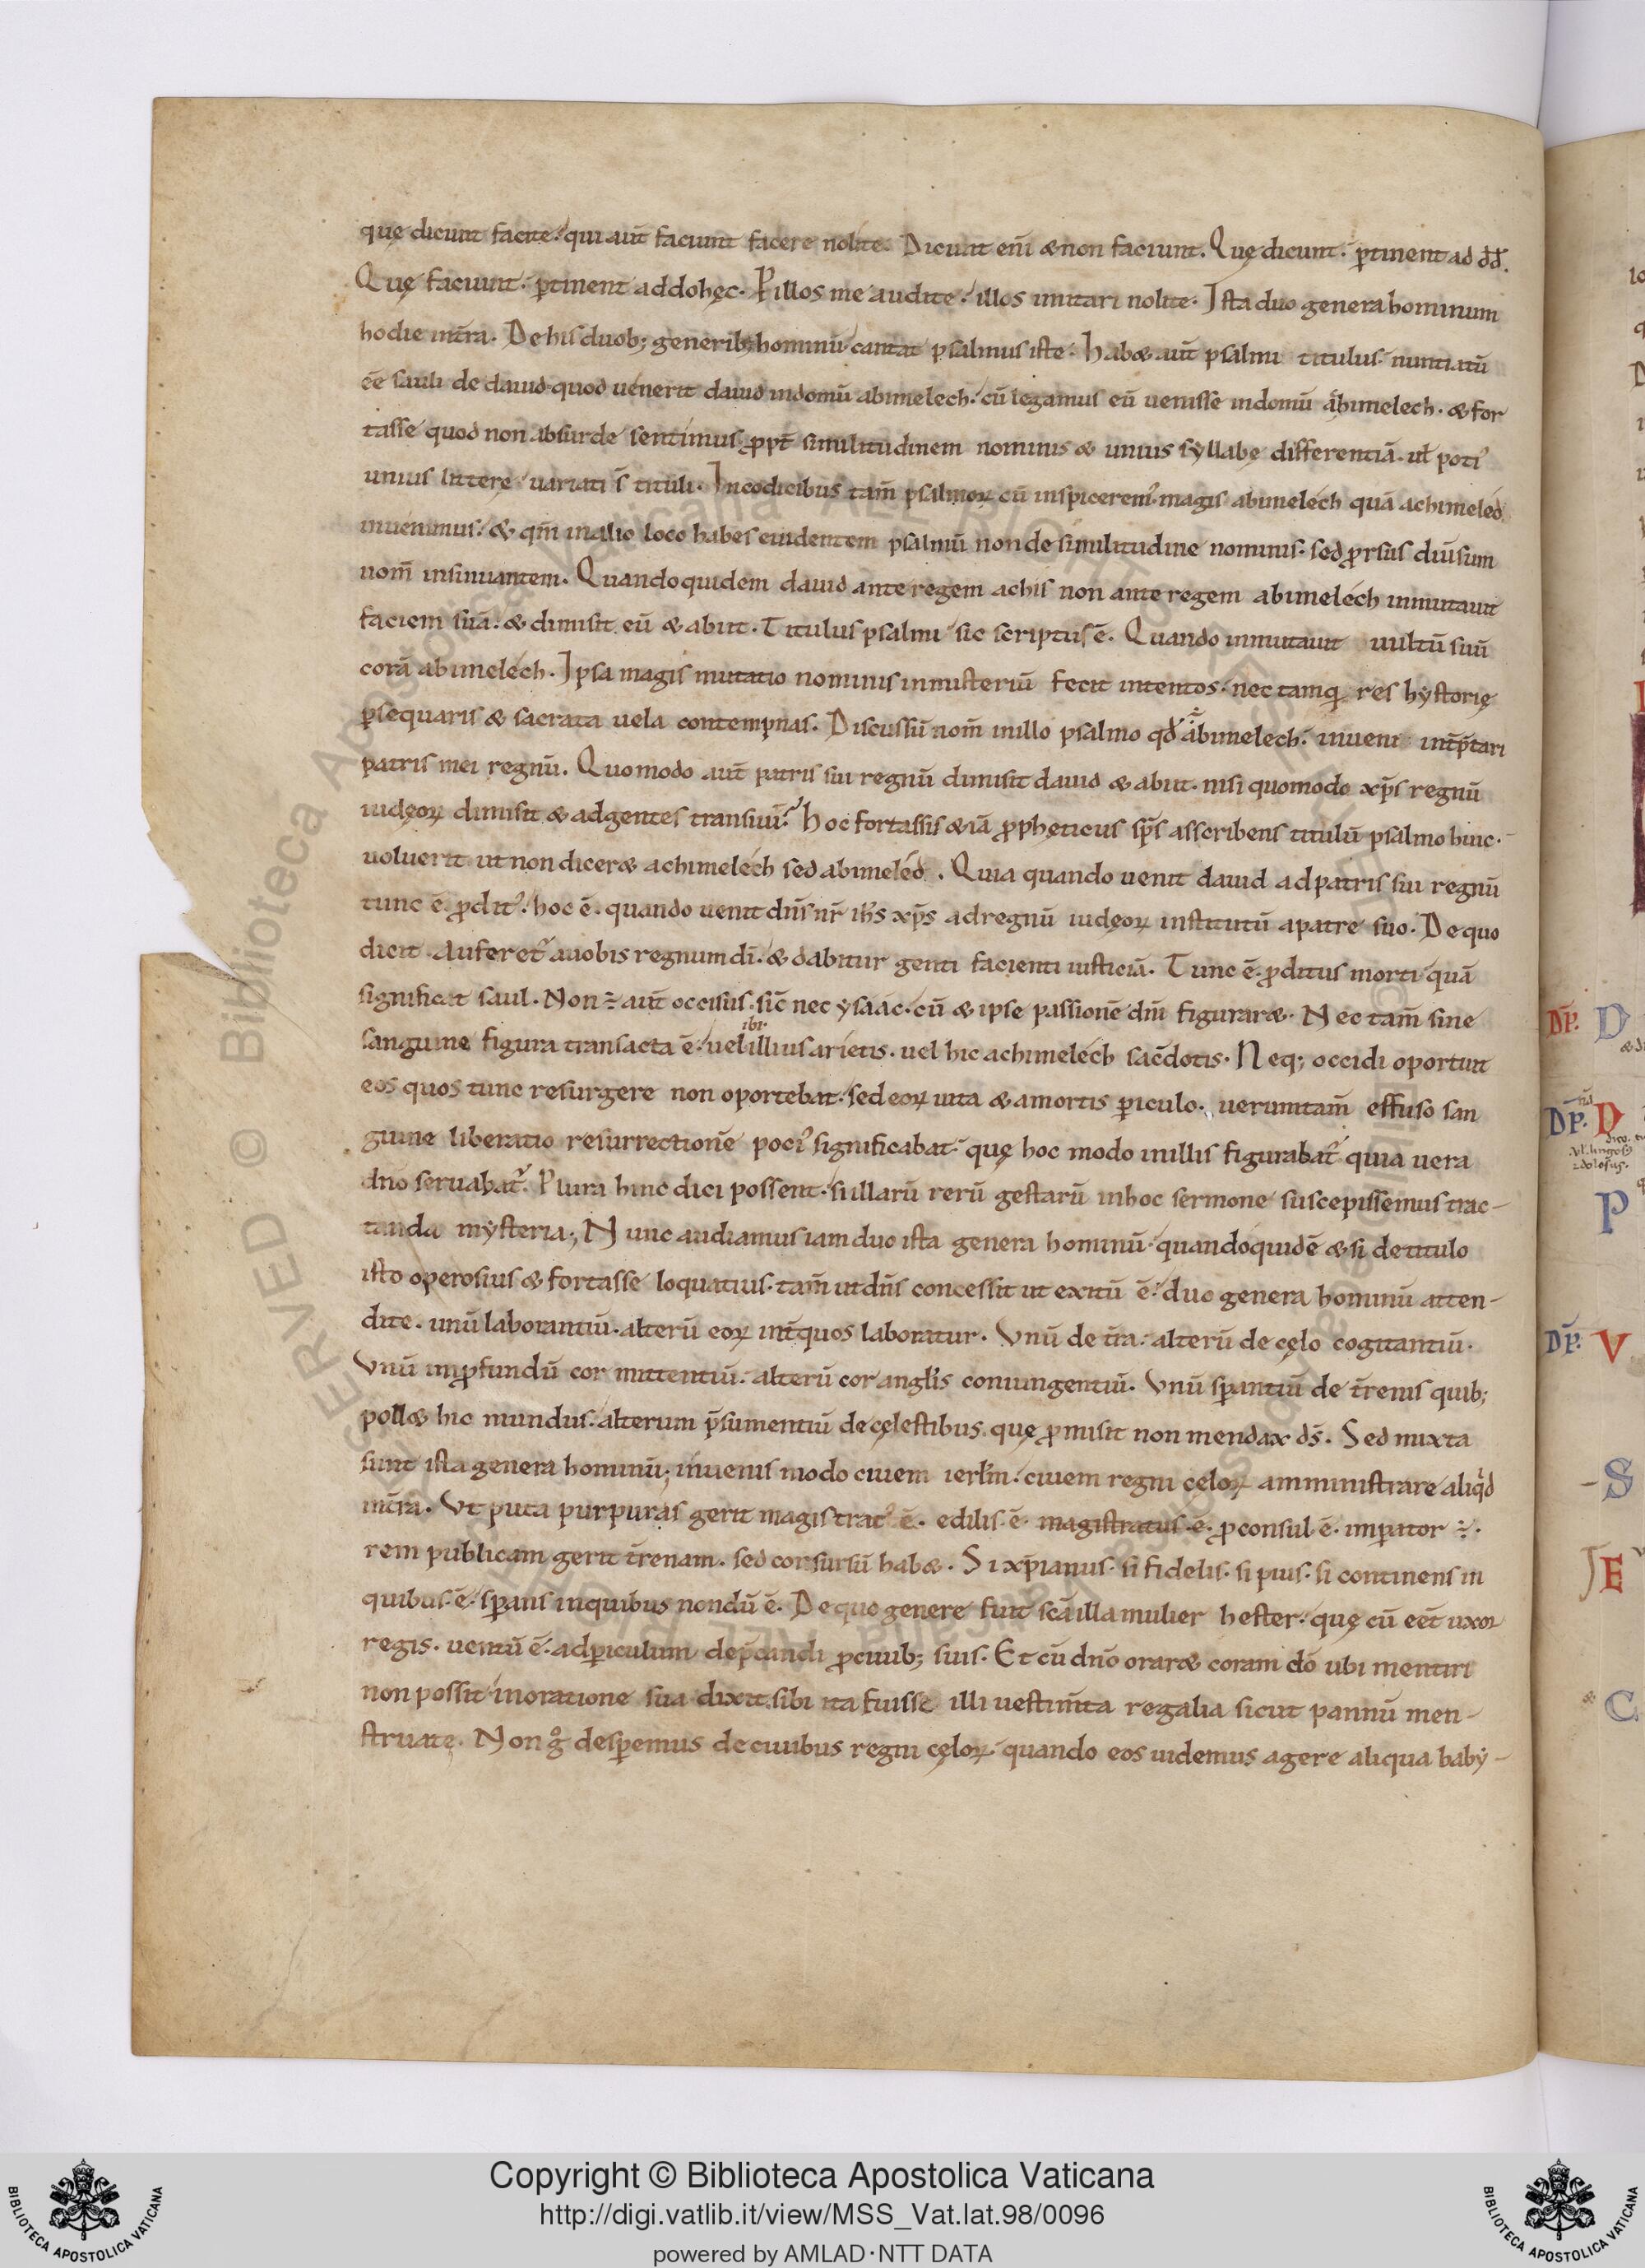 quę dicunt facite. qui aut̄ faciunt facere nolite. Dicunt eni᷎ & non faciunt. Quę dicunt. ꝑtinent ad dd̄.
Quę faciunt. ꝑtinent ad dohęc. P illos me audite. illos imitari nolite. Ista duo genera hominum
hodie int̄ra. De his duob; generib; hominū cantat psalmus iste. Hab& aut̄ psalmi titulus. nuntiatū
ēe sauli de dauid quod uenerit dauid in domū abimelech. cū legamus eū uenisse in domū achimelech. & for
tasse quod non absurde sentimus. ꝓpt̄ similitudinem nominis & unius syllabę differentiā. ul̄ poti᾽
unius litterę uariati s̄ tituli. In codicibus tam̄ psalmoꝝ cū inspicerem᾽. magis abimelech quā achimelech
inuenimus. & qm̄ in alio loco habes euidentem psalmū non de similitudine nominis. sed ꝓrsus diu̅sum
nom̄ insinuantem. Quandoquidem dauid ante regem achis non ante regem abimelech inmutauit
faciem suā. & dimisit eū & abiit. Titulus psalmi sic scriptus ē. Quando inmutauit uultū suū
corā abimelech. Ipsa magis mutatio nominis in misteriū fecit intentos. nec tamq̄ res hystorię
ꝑsequaris & sacrata uela contempnas. Discussū nom̄ in illo psalmo qd̄ abimelech. inueni int̄p̄tari
patris mei regnū. Quomodo aut̄ patris sui regnū dimisit dauid & abiit. nisi quomodo xp̄s regnū
iudęoꝝ dimisit & ad gentes transiuit̄? Hoc fortassis & iā ꝓphęticus sp̄s asscribens titulū psalmo hinc.
uoluerit ut non dicer& achimelech sed abimelech. Quia quando uenit dauid ad patris sui regnū
tunc ē ꝓdit᾽. hoc ē. quando uenit dn̄s nr̄ ih̄s xp̄s ad regnū iudęoꝝ institutū a patre suo. De quo
dicit. Auferet᷑ a uobis regnum dī. & dabitur genti facienti iusticiā. Tunc ē ꝓditus morti quā
significat saul. Non ÷ aut̄ occisus. sic̄ nec ysaac. cū & ipse passionē dn̄i figurar&. Nec tam̄ sine
ibi.
sanguine figura transacta ē. uel illius arietis. uel hic achimelech sac̄dotis. Neq; occidi oportuit
eos quos tunc resurgere non oportebat. sed eoꝝ uita & a mortis ꝑiculo. ueruntam̄ effuso san
guine liberatio resurrectionē poci᾽ significabat. quę hoc modo in illis figurabat᷑ quia uera
dn̄o seruabat᷑. Plura hinc dici possent. si illarū rerū gestarū in hoc sermone suscepissemus trac-
tanda mysteria; Nunc audiamus iam duo ista genera hominū. quandoquidē & si de titulo
isto operosius & fortasse loquatius. tam̄ ut dn̄s concessit ut exitū ē. duo genera hominū atten-
dite. unū laborantiū. alterū eoꝝ int̄ quos laboratur. Vnū de t̄ra. alterū de cęlo cogitantiū.
Vnū in ꝓfundū cor mittentiū. alterū cor angl̄is coniungentiū. Vnū sꝑantiū de t̄renis quib;
poll& hic mundus. alterum p̄sumentiū de cęlestibus quę ꝓmisit non mendax ds̄. Sed mixta
sunt ista genera hominū; inuenis modo ciuem ierl̄m. ciuem regni cęloꝝ amministrare aliqid
int̄ra. Vt puta purpuras gerit magistrat᾽ ē. edilis ē magistratus ē. ꝓconsul ē. imꝑator ÷.
rem publicam gerit t̄renam. sed cor sursū hab&. Si xp̄ianus. si fidelis. si pius. si continens in
quibus ē. sꝑans in quibus nondū ē. De quo genere fuit scā illa mulier hester. quę cū eēt uxor
regis. uentū ē ad ꝑiculum dep̄candi ꝓ ciuib; suis. Et cū dn̄o orar& coram dō ubi mentiri
non possit in oratione sua dixit. sibi ita fuisse illi uestim̄ta regalia sicut pannū men-
struatę. Non g̊ desꝑemus de ciuibus regni cęloꝝ. quando eos uidemus agere aliqua baby-
Dp̄. D
Dp̄. D
P
Dp̄. V
S
E
C
© Biblioteca Apostolica Vaticana ALL RIGHTS RESERVED
Copyright © Biblioteca Apostolica Vaticana
http://digi.vatlib.it/view/MSS_Vat.lat.98/0096
powered by AMLAD·NTT DATA
BIBLIOTECA APOSTOLICA VATICANA
BIBLIOTECA APOSTOLICA VATICANA